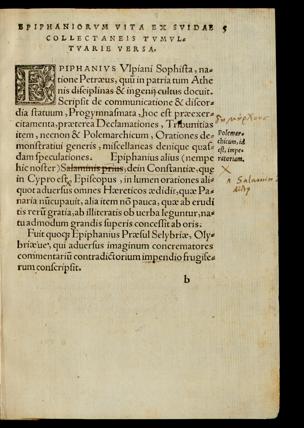 EPIPHANIORVM VITA EX SVIDAE 5
COLLECTANEIS TVMVL
TVARIE VERSA.
EPIPHANIVS Vlpiani Sophista, na-
tione Petræus, quū in patria tum Athe
nis disciplinas & ingenij cultus docuit.
Scripsit de communicatione & discor-
dia statuum, Progymnasmata, hoc est præexer-
citamenta, præterea Declamationes, Tribunitias
item, necnon & Polemarchicum, Orationes de-
monstratiui generis, miscellaneas denique quas-
dam speculationes. Epiphanius alius (nempe
hic noster) Salaminis prius, dein Constantiæ, quę
in Cypro est, Episcopus, in lumen orationes ali-
quot aduersus omnes Hæreticos ædidit, quæ Pa-
naria nūcupauit, alia item nō pauca, quæ ab erudi
tis rerū gratia, ab illiteratis ob uerba leguntur, na-
tu admodum grandis superis concessit ab oris.
Fuit quoqȝ Epiphanius Præsul Selybriæ,
qui aduersus imaginum concrematores
commentariū contradictorium impendio frugife-
rum conscripsit.
b
Polemar-
chicum, id
est, impe-
ratorium.
X